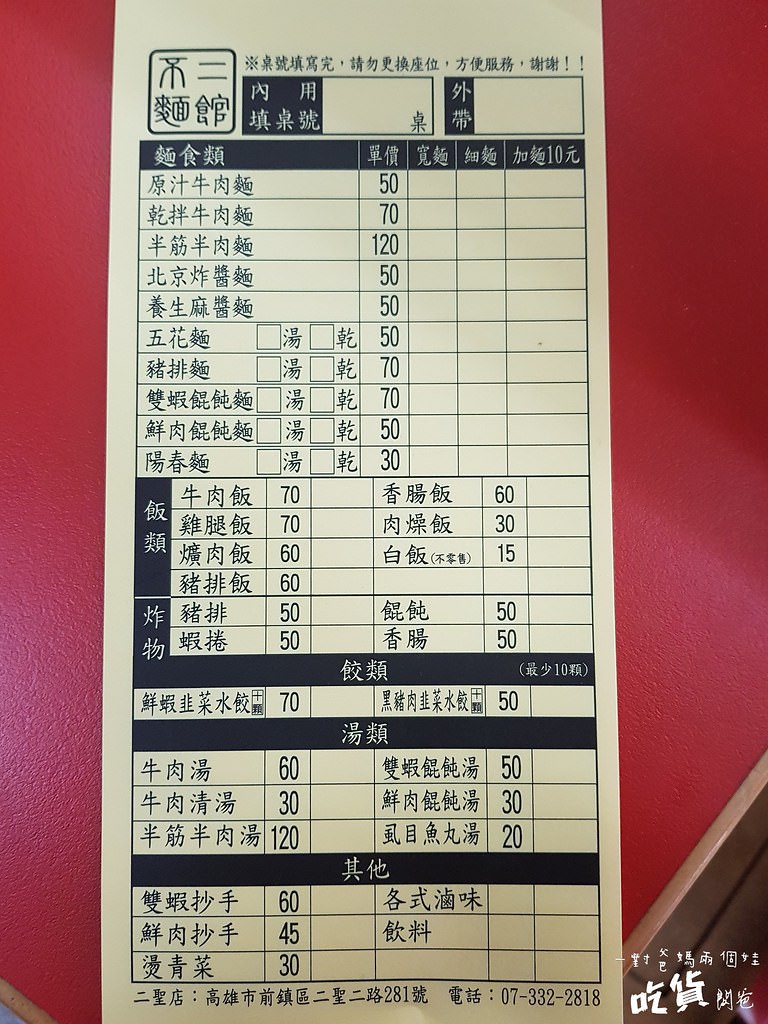 不二
麵館
※桌號填寫完，請勿更換座位，方便服務，謝謝！！
內用
填桌號 桌
外帶
麵食類 單價 寬麵 細麵 加麵10元
原汁牛肉麵 50
乾拌牛肉麵 70
半筋半肉麵 120
北京炸醬麵 50
養生麻醬麵 50
五花麵 □湯□乾 50
豬排麵 □湯□乾 70
雙蝦餛飩麵 □湯□乾 70
鮮肉餛飩麵 □湯□乾 50
陽春麵 □湯□乾 30
飯類
牛肉飯 70 香腸飯 60
雞腿飯 70 肉燥飯 30
爌肉飯 60 白飯(不零售) 15
豬排飯 60
炸物
豬排 50 餛飩 50
蝦捲 50 香腸 50
餃類 (最少10顆)
鮮蝦韭菜水餃十顆 70 黑豬肉韭菜水餃十顆 50
湯類
牛肉湯 60 雙蝦餛飩湯 50
牛肉清湯 30 鮮肉餛飩湯 30
半筋半肉湯 120 虱目魚丸湯 20
其他
雙蝦抄手 60 各式滷味
鮮肉抄手 45 飲料
燙青菜 30
二聖店：高雄市前鎮區二聖二路281號 電話：07-332-2818
一對爸媽兩個娃
吃貨